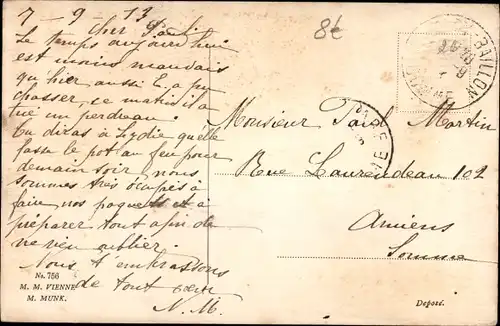 7-9-13
Cher Paul
Le temps aujourd'hui
est moins mauvais
qu'hier aussi E. a pu
chasser, ce matin il a
tué un perdreau.
Tu diras à Lydie qu'elle
fasse le pot au feu pour
demain soir, nous
sommes très occupés à
faire nos paquets et à
préparer tout afin de
ne rien oublier.
Nous t'embrassons
de tout cœur
N. M.
8€
BAILLON
Monsieur Paul Martin
Rue Laurendeau 102
Amiens
Somme
No. 756
M. M. VIENNE
M. MUNK.
Deposé.